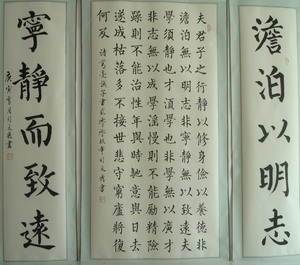 澹泊以明志
夫君子之行靜以修身儉以養德非
澹泊無以明志非寧靜無以致遠夫
學須靜也才須學也非學無以廣才
非志無以成學淫慢則不能勵精險
躁則不能治性年與時馳意與日去
遂成枯落多不接世悲守窮廬將復
何及
寧靜而致遠